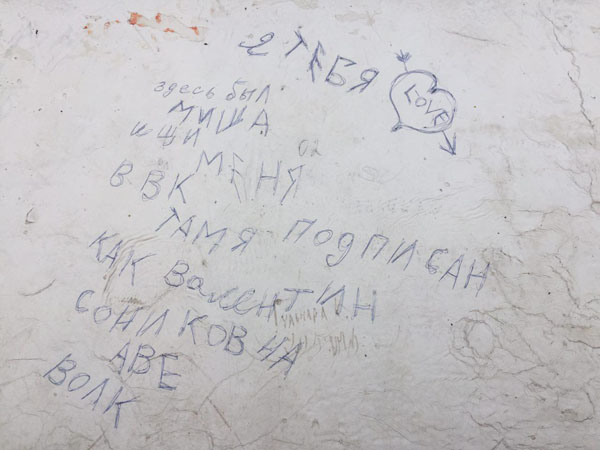 Я ТЕБЯ LOVE
здесь был
МИША
ищи
МЕНЯ
В ВК
ТАМ Я ПОДПИСАН
КАК Валентин
СОНИКОВ НА
АВЕ
ВОЛК